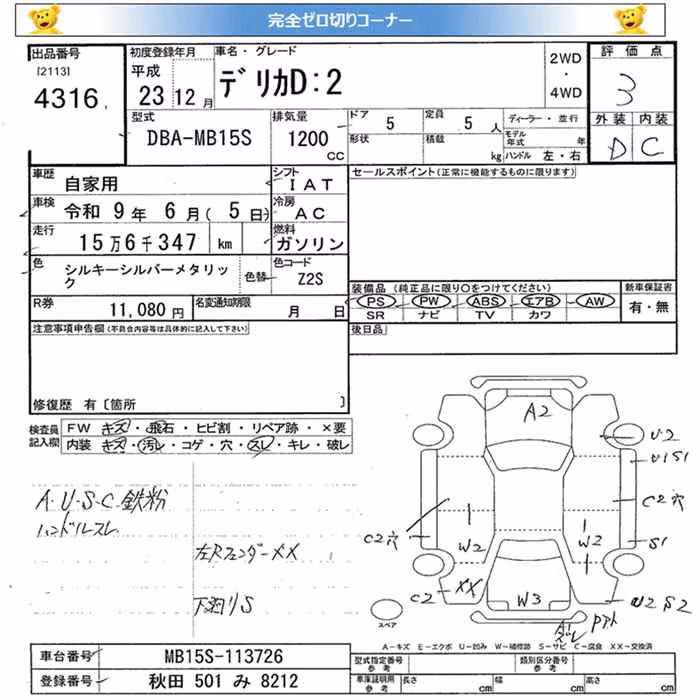 完全ゼロ切りコーナー
出品番号
[2113]
4316
初度登録年月
平成
23 12 月
車名・グレード
デリカD:2
2WD
・
4WD
評価点
3
外装 内装
D C
型式
DBA-MB15S
排気量
1200
CC
ドア 5
形状
定員 5 人
積載 kg
ディーラー・並行
モデル年式 年
ハンドル 左・右
車歴 自家用
シフト IAT
車検 令和 9年 6月( 5日)
冷房 AC
走行 15万6千347 km
燃料 ガソリン
色 シルキーシルバーメタリック
色替
色コード Z2S
R券 11,080 円
名変通知期限 月 日
セールスポイント(正常に機能するものに限ります)
装備品 (純正品に限り○をつけてください)
PS PW ABS エアB AW
SR ナビ TV カワ
新車保証書
有・無
後日品
注意事項申告欄(不具合内容等は具体的に記入して下さい)
修復歴 有〔箇所 〕
検査員記入欄
FW キズ・飛石・ヒビ割・リペア跡・×要
内装 キズ・汚レ・コゲ・穴・スレ・キレ・破レ
A・U・S・C 鉄粉
ハンドルスレ
左Rフェンダー××
下廻りS
A2
U2
U1S1
C2穴
C2穴
W2
W2
S1
C2
××
W3
U2 S2
スペア
A-キズ E-エクボ U-凹み W-補修跡 S-サビ C-腐食 XX-交換済
車台番号 MB15S-113726
登録番号 秋田 501 み 8212
型式指定番号
参考
類別区分番号
参考
車庫証明用
参考
長さ cm 幅 cm 高さ cm